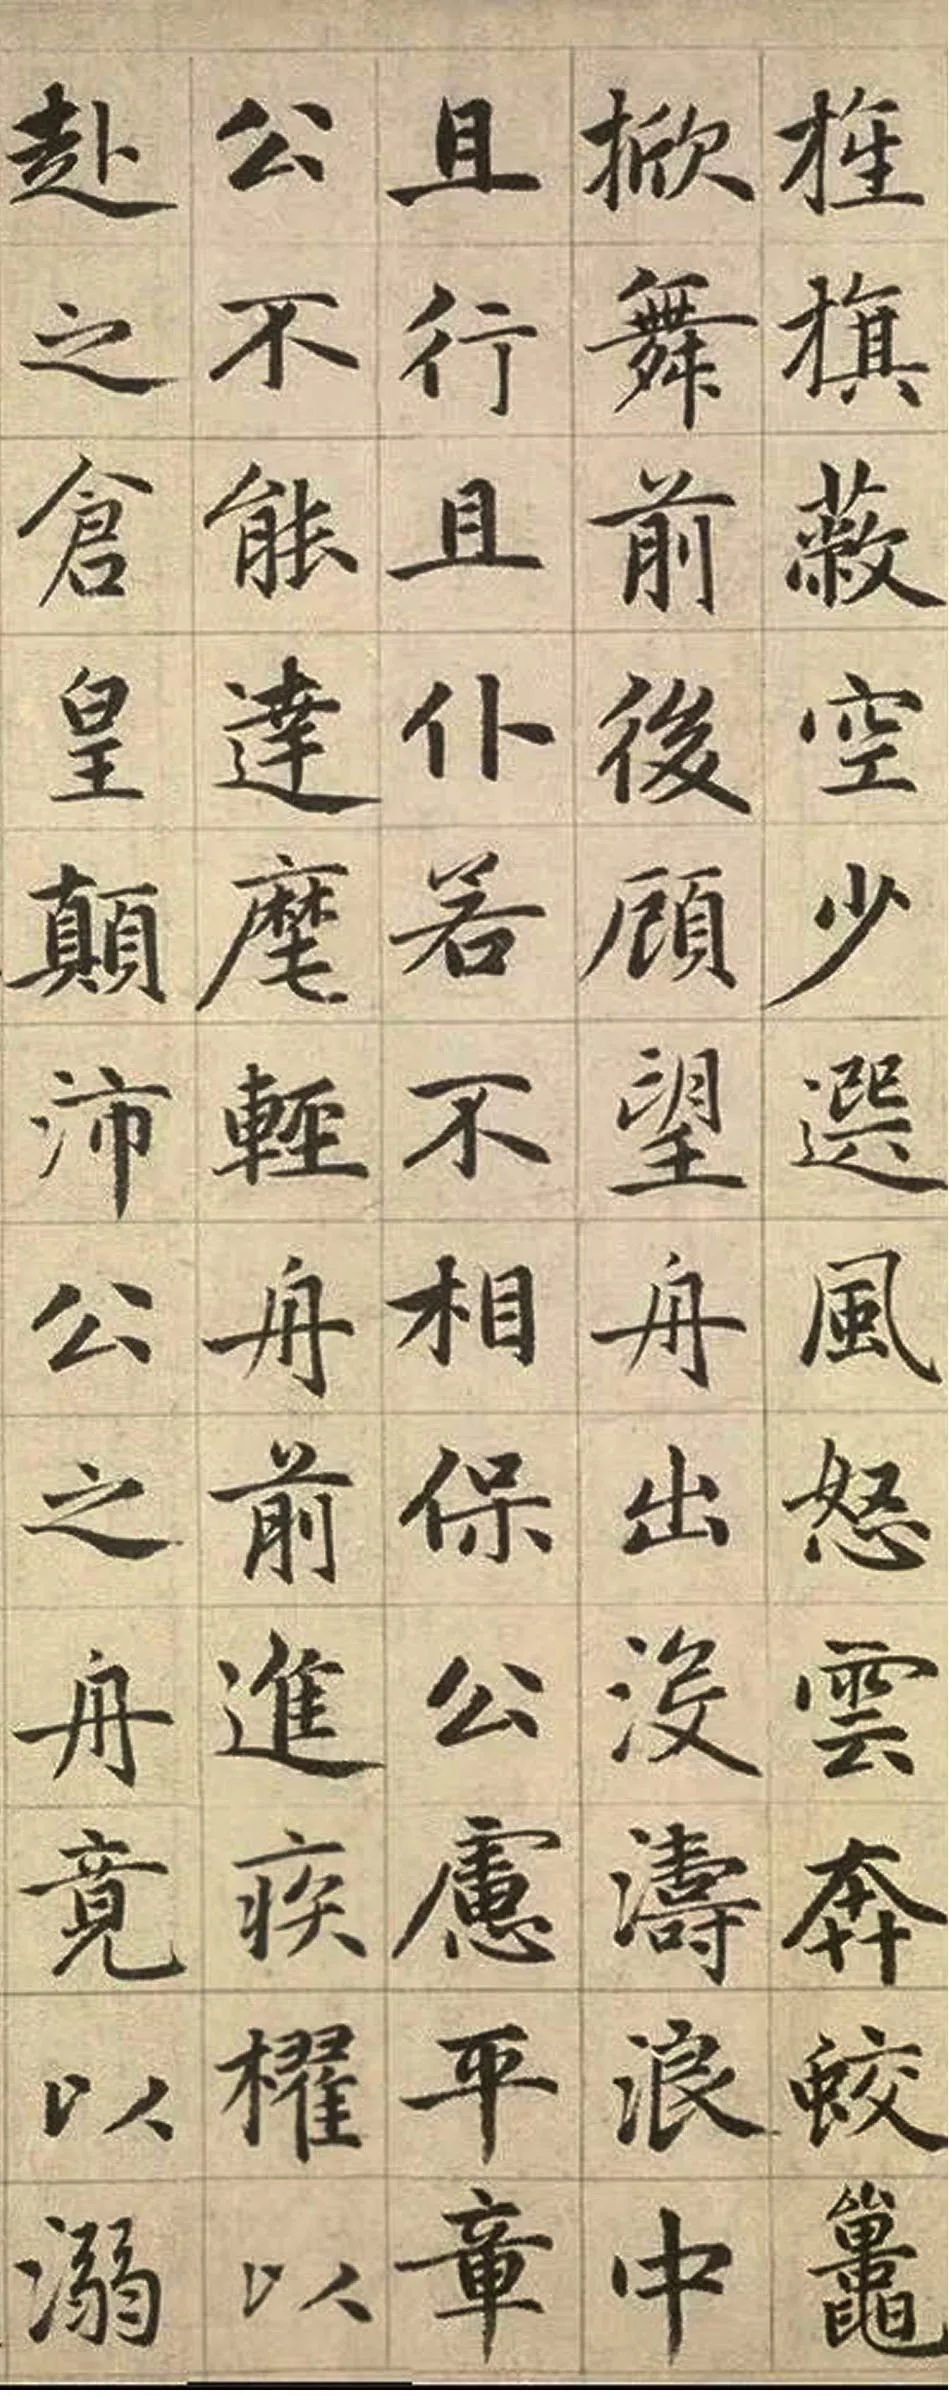 旌旗蔽空少選風怒雲奔蛟鼉
掀舞前後顧望舟出沒濤浪中
且行且仆若不相保公慮平章
公不能達麾輕舟前進疾櫂以
赴之倉皇顛沛公之舟竟以溺